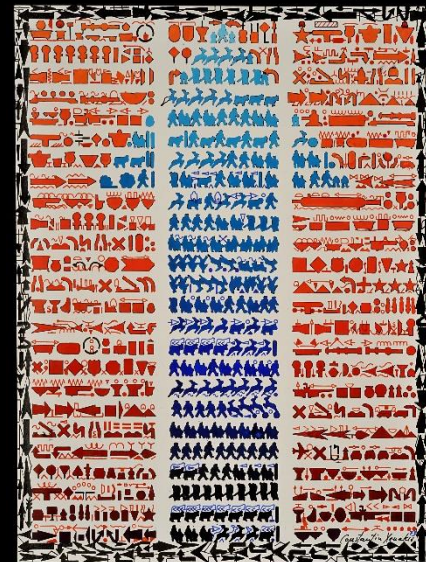 Constantin Xenakis